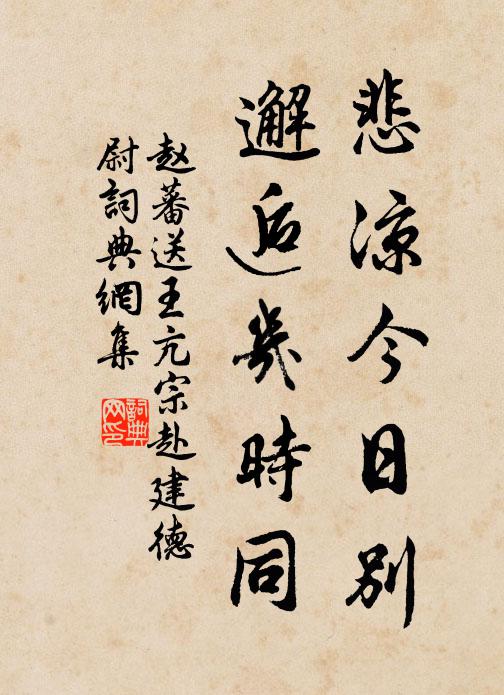 悲涼今日别
邂逅幾時同
赵蕃送王亢宗赴建德
尉詞典網集
詞典网印